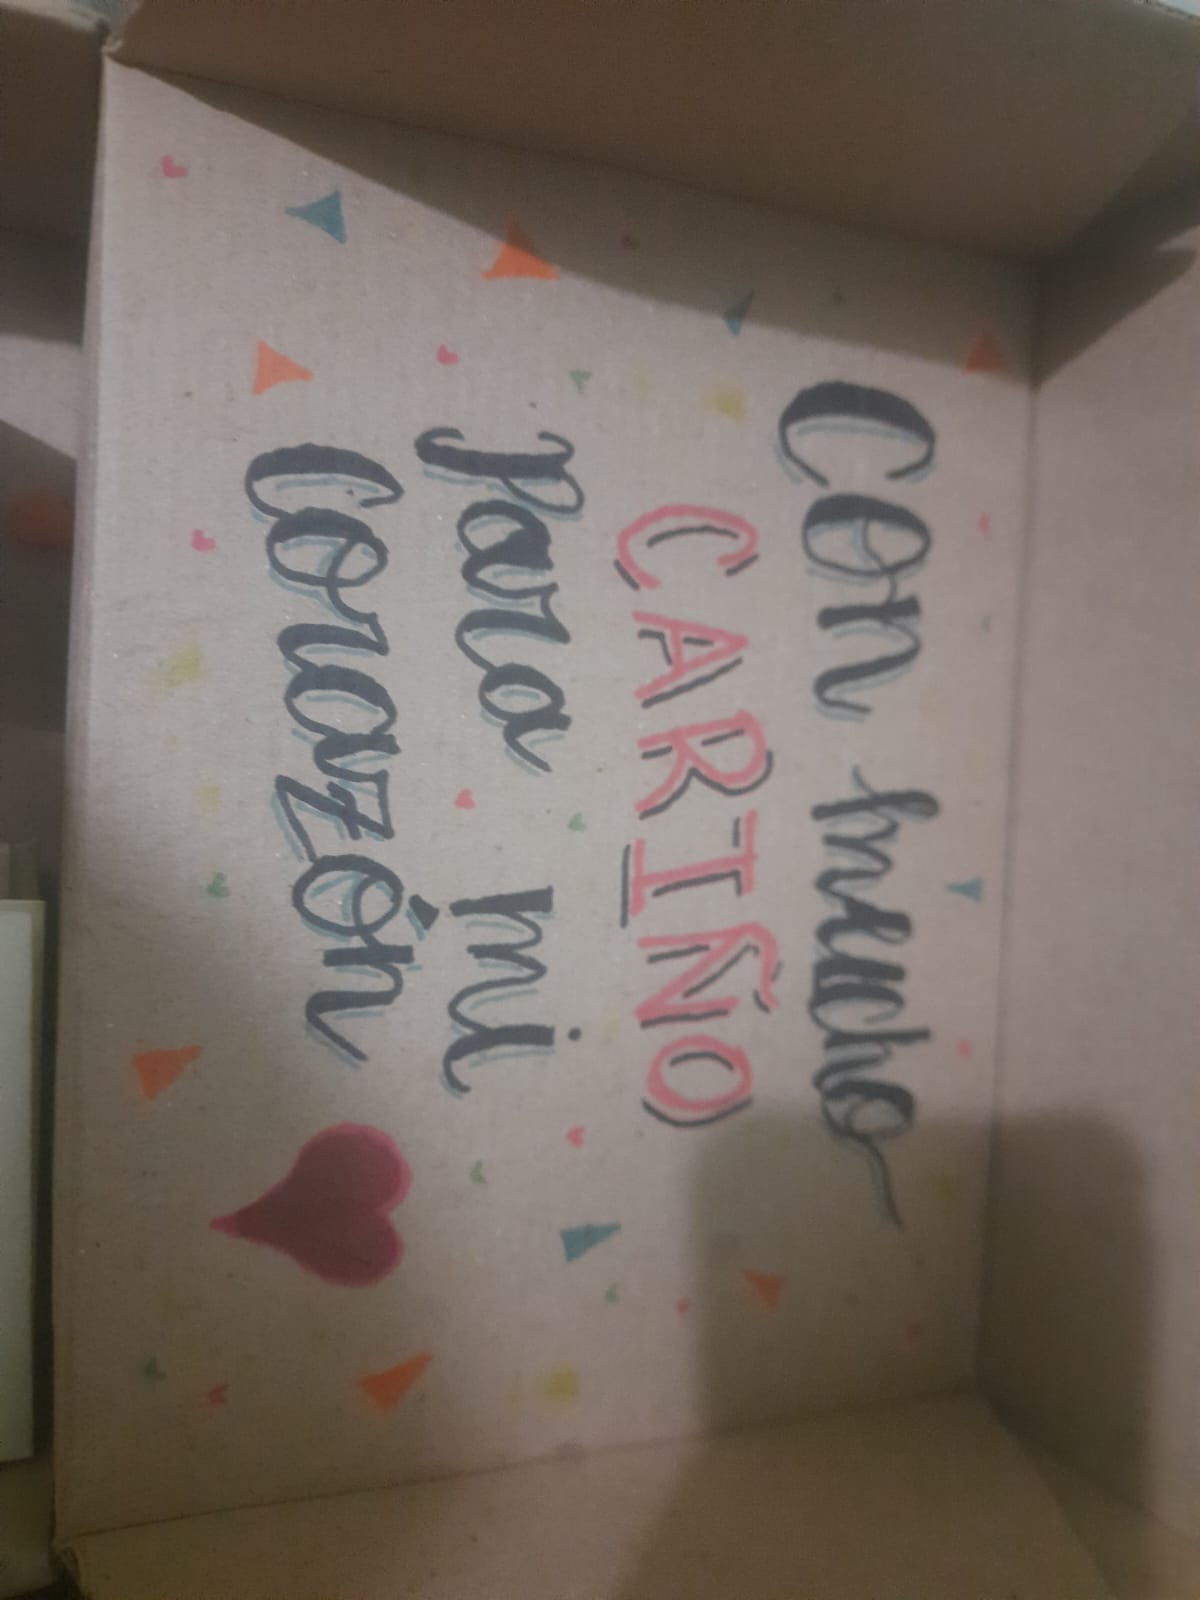 Con mucho
CARIÑO
para mi
Corazón